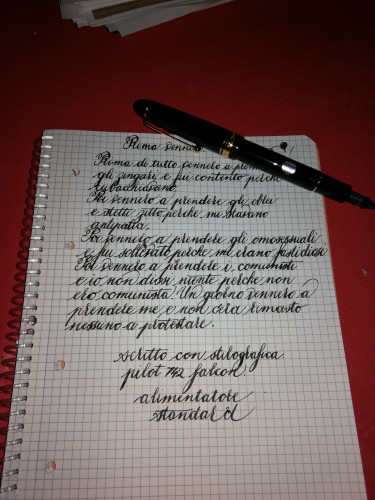 Prima vennero
Prima di tutto vennero a prendere
gli zingari e fui contento perche
rubacchiavano.
Poi vennero a prendere gli ebrei
e stetti zitto perche mi stavano
antipatici.
Poi vennero a prendere gli omosessuali
e fui sollevato perche mi erano fastidiosi
Poi vennero a prendere i comunisti
e io non dissi niente perche non
ero comunista. Un giorno vennero a
prendere me e non c'era rimasto
nessuno a protestare.
scritto con stilografica
pilot 742 falcon
alimentatore
standard